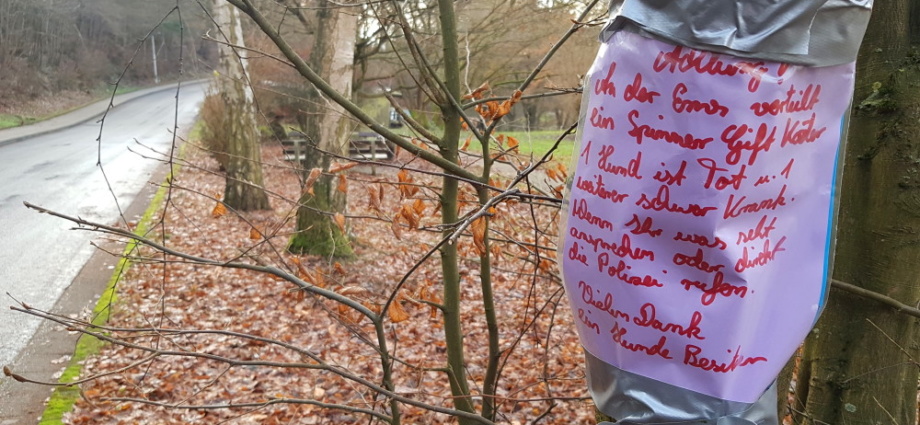 Achtung!
An der Ems verteilt
ein Spinner Gift Köder
1 Hund ist Tot u. 1
weiterer schwer Krank.
Wenn Ihr was seht
ansprechen oder direkt
die Polizei rufen.
Vielen Dank
ein Hunde Besitzer